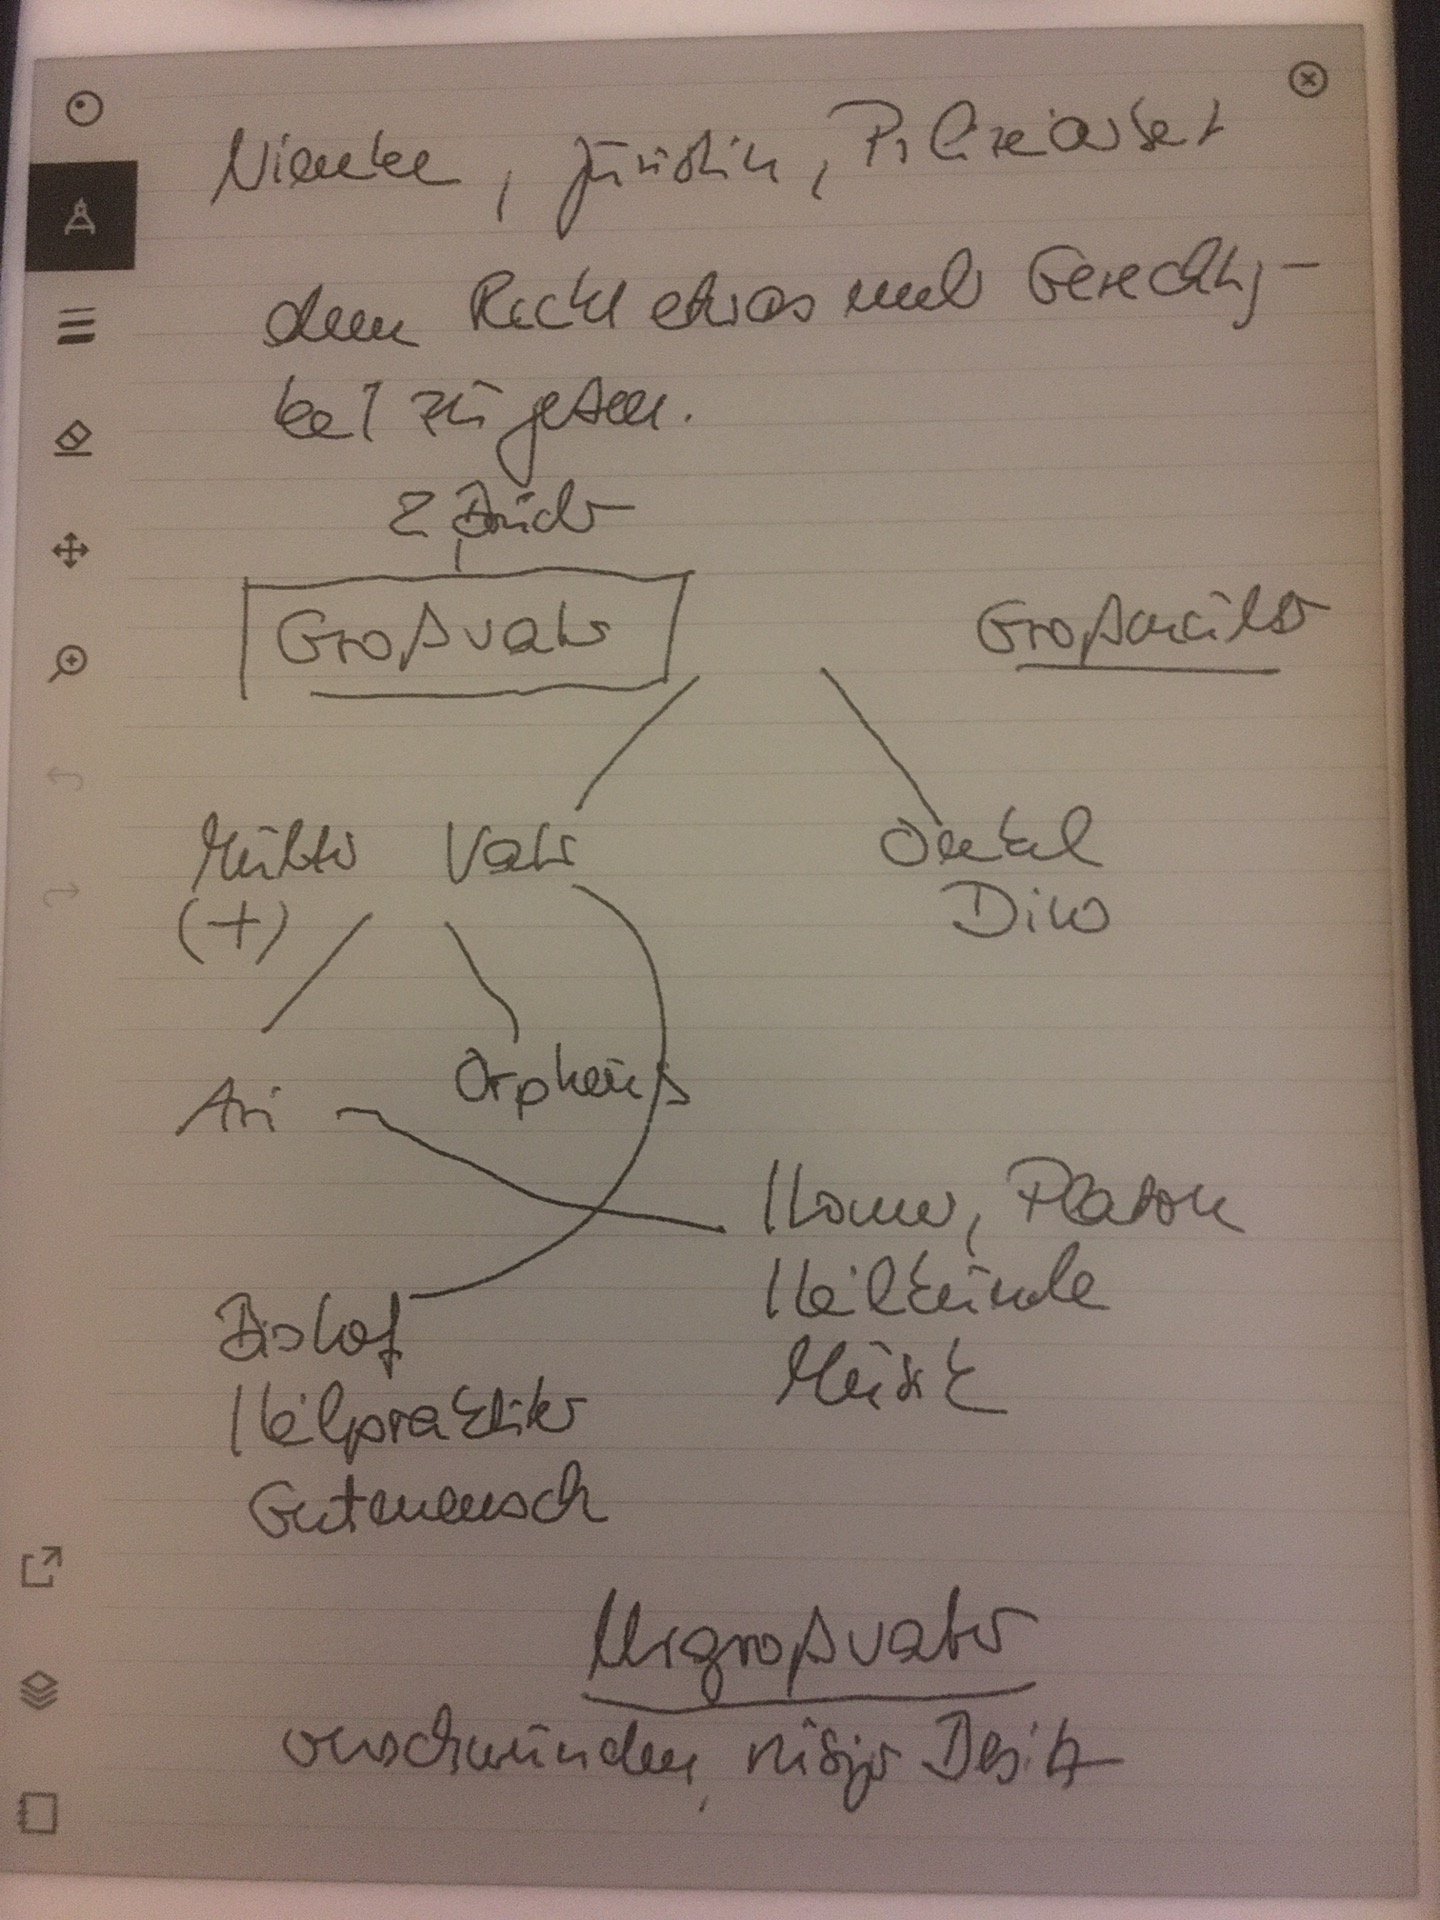 Nienke, Juristin, Polizeiarbeit
dem Recht etwas mehr Gerechtig-
keit zugeben.
2 Brüder
Großvater
Großmutter
Mutter Vater
Onkel
(+)
Dino
Ari
Orpheus
Homer, Platon
Heilkunde
Musik
Bischof
Heilpraktiker
Gutmensch
Urgroßvater
verschwunden, riesiger Besitz